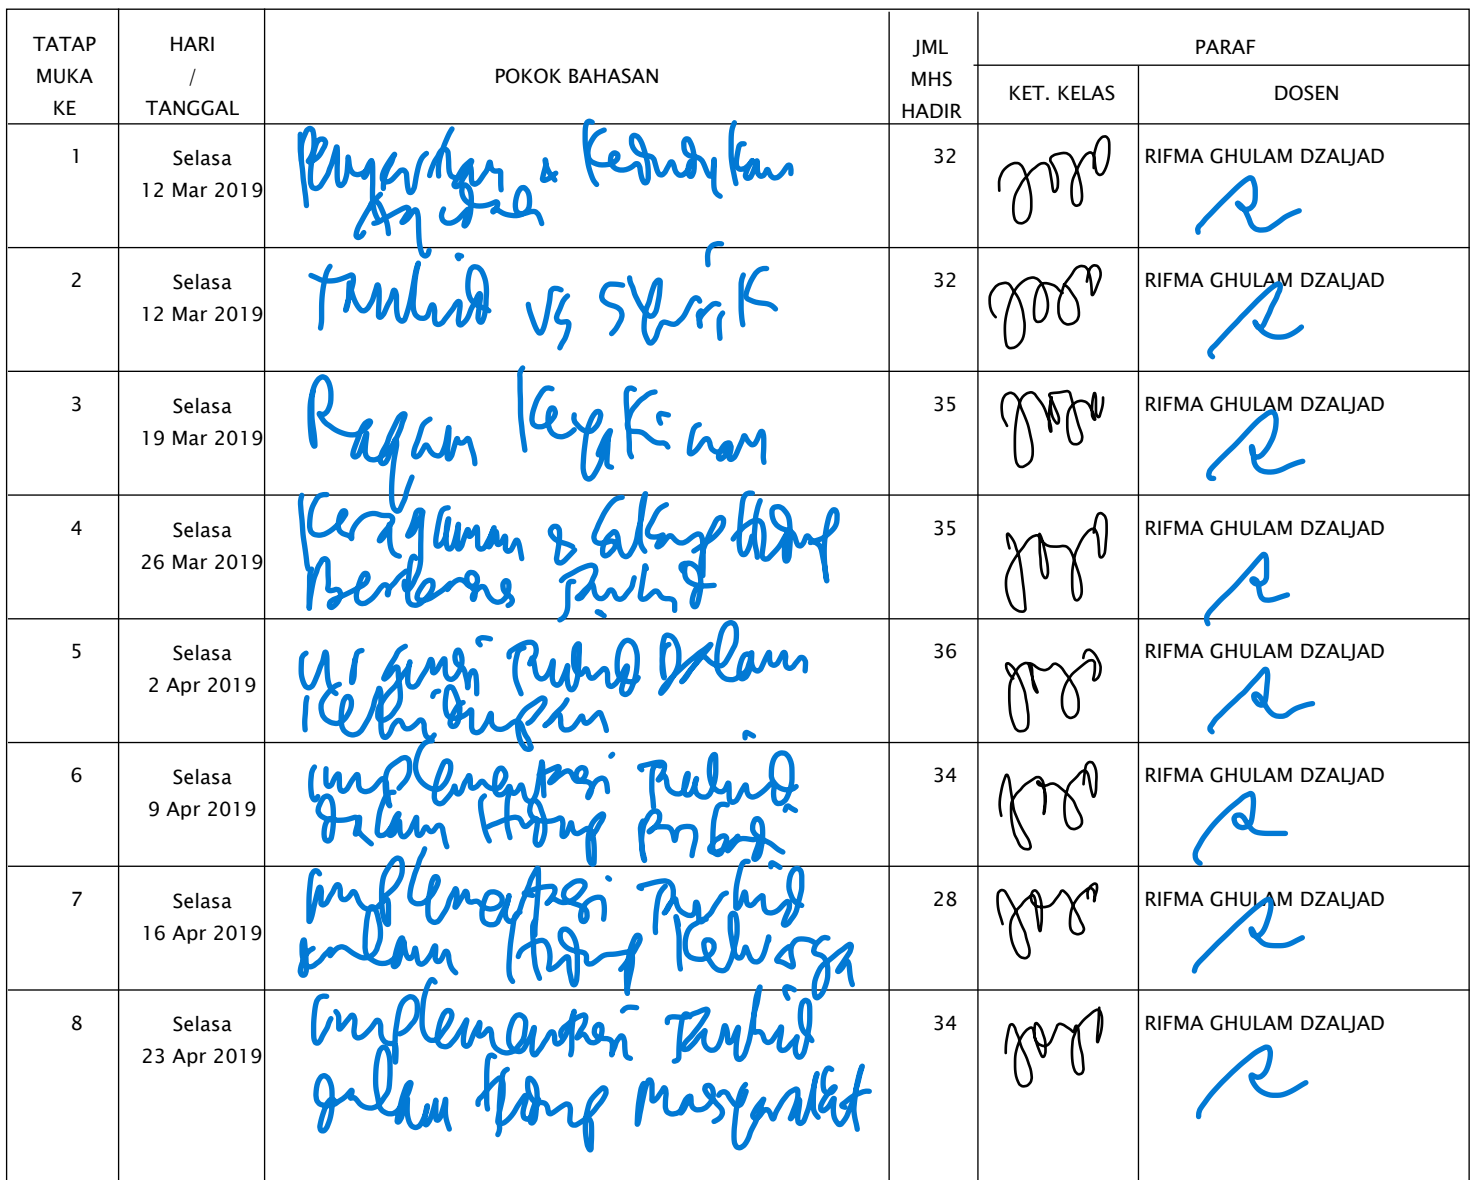 TATAP MUKA KE
HARI / TANGGAL
POKOK BAHASAN
JML MHS HADIR
PARAF
KET. KELAS
DOSEN
1
Selasa
12 Mar 2019
Pengarahan & Kedudukan
Aqidah
32
RIFMA GHULAM DZALJAD
2
Selasa
12 Mar 2019
Tauhid vs Syirik
32
RIFMA GHULAM DZALJAD
3
Selasa
19 Mar 2019
Ragam Keyakinan
35
RIFMA GHULAM DZALJAD
4
Selasa
26 Mar 2019
Keragaman & Hidup
Tauhid
35
RIFMA GHULAM DZALJAD
5
Selasa
2 Apr 2019
Urgensi Tauhid Dalam
Kehidupan
36
RIFMA GHULAM DZALJAD
6
Selasa
9 Apr 2019
Implementasi Tauhid
dalam Hidup Pribadi
34
RIFMA GHULAM DZALJAD
7
Selasa
16 Apr 2019
Implementasi Tauhid
dalam Hidup Keluarga
28
RIFMA GHULAM DZALJAD
8
Selasa
23 Apr 2019
Implementasi Tauhid
dalam Hidup Masyarakat
34
RIFMA GHULAM DZALJAD